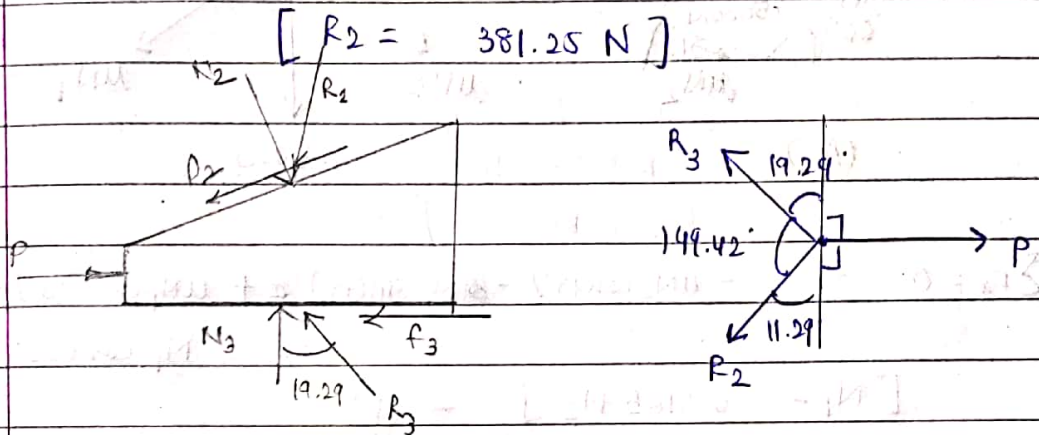 [ R2 = 381.25 N ]
N2
R2
P
N3
19.29
R3
f3
R3
19.29°
149.42°
P
11.29
R2